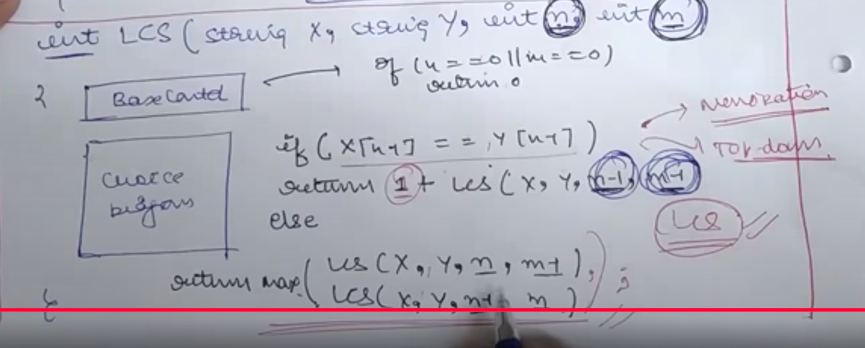 int LCS ( string X, string Y, int n, int m
{
Base Condn
if (n == 0 || m == 0)
return 0
Choice
Diagram
if ( X[n-1] == Y[n-1] )
return 1 + LCS ( X, Y, n-1, m-1
else
return max ( LCS (X, Y, n, m-1),
LCS( X, Y, n-1, m ) ) ;
}
Memoization
Top-down
LCS